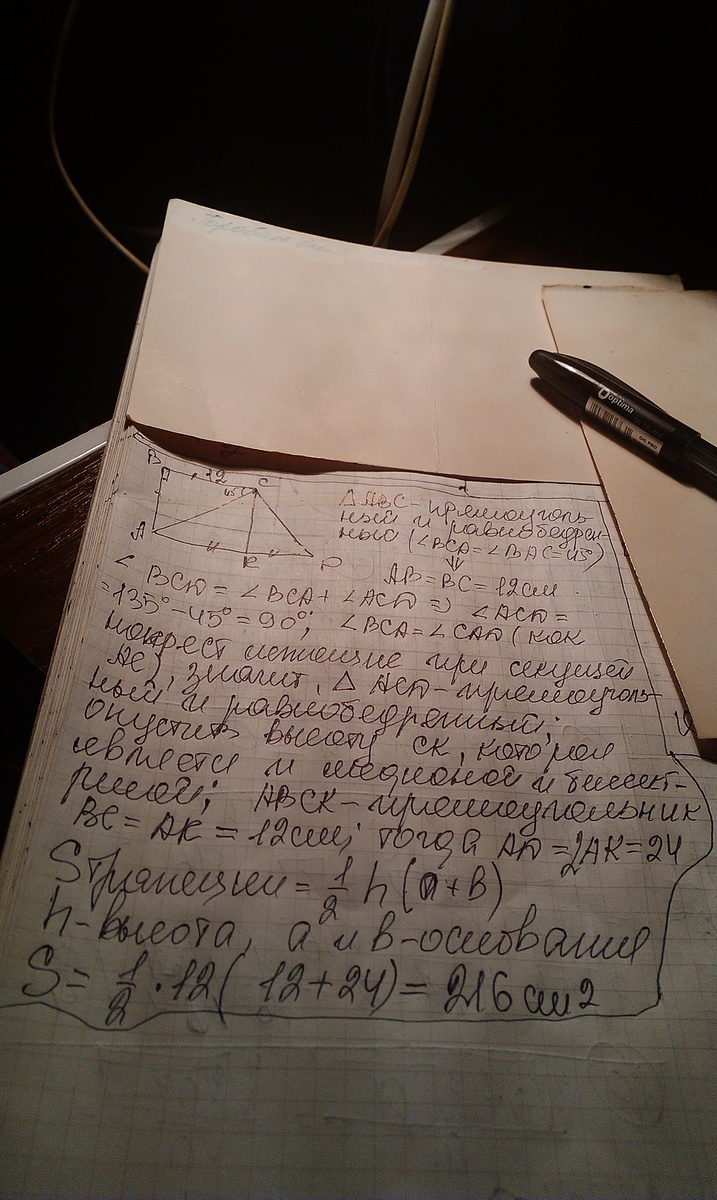 B 12 C
45°
A K D
△ABC-прямоуголь-
ный и равнобедрен-
ный (∠BCA=∠BAC=45)
⇓
AB=BC=12см.
∠BCD=∠BCA+∠ACD ⇒ ∠ACD=
=135°-45°=90°; ∠BCA=∠CAD (как
накрест лежащие при секущей
AC), значит, △ACD-прямоуголь-
ный и равнобедренный;
опустить высоту CK, которая
является и медианой и биссект-
рисой; ABCK-прямоугольник
BC=AK=12см; тогда AD=2AK=24
S трапеции = 1/2 h(a+b)
h-высота, a и b-основания
S= 1/2 · 12( 12+24)= 216 см2
optima
OIL PRO